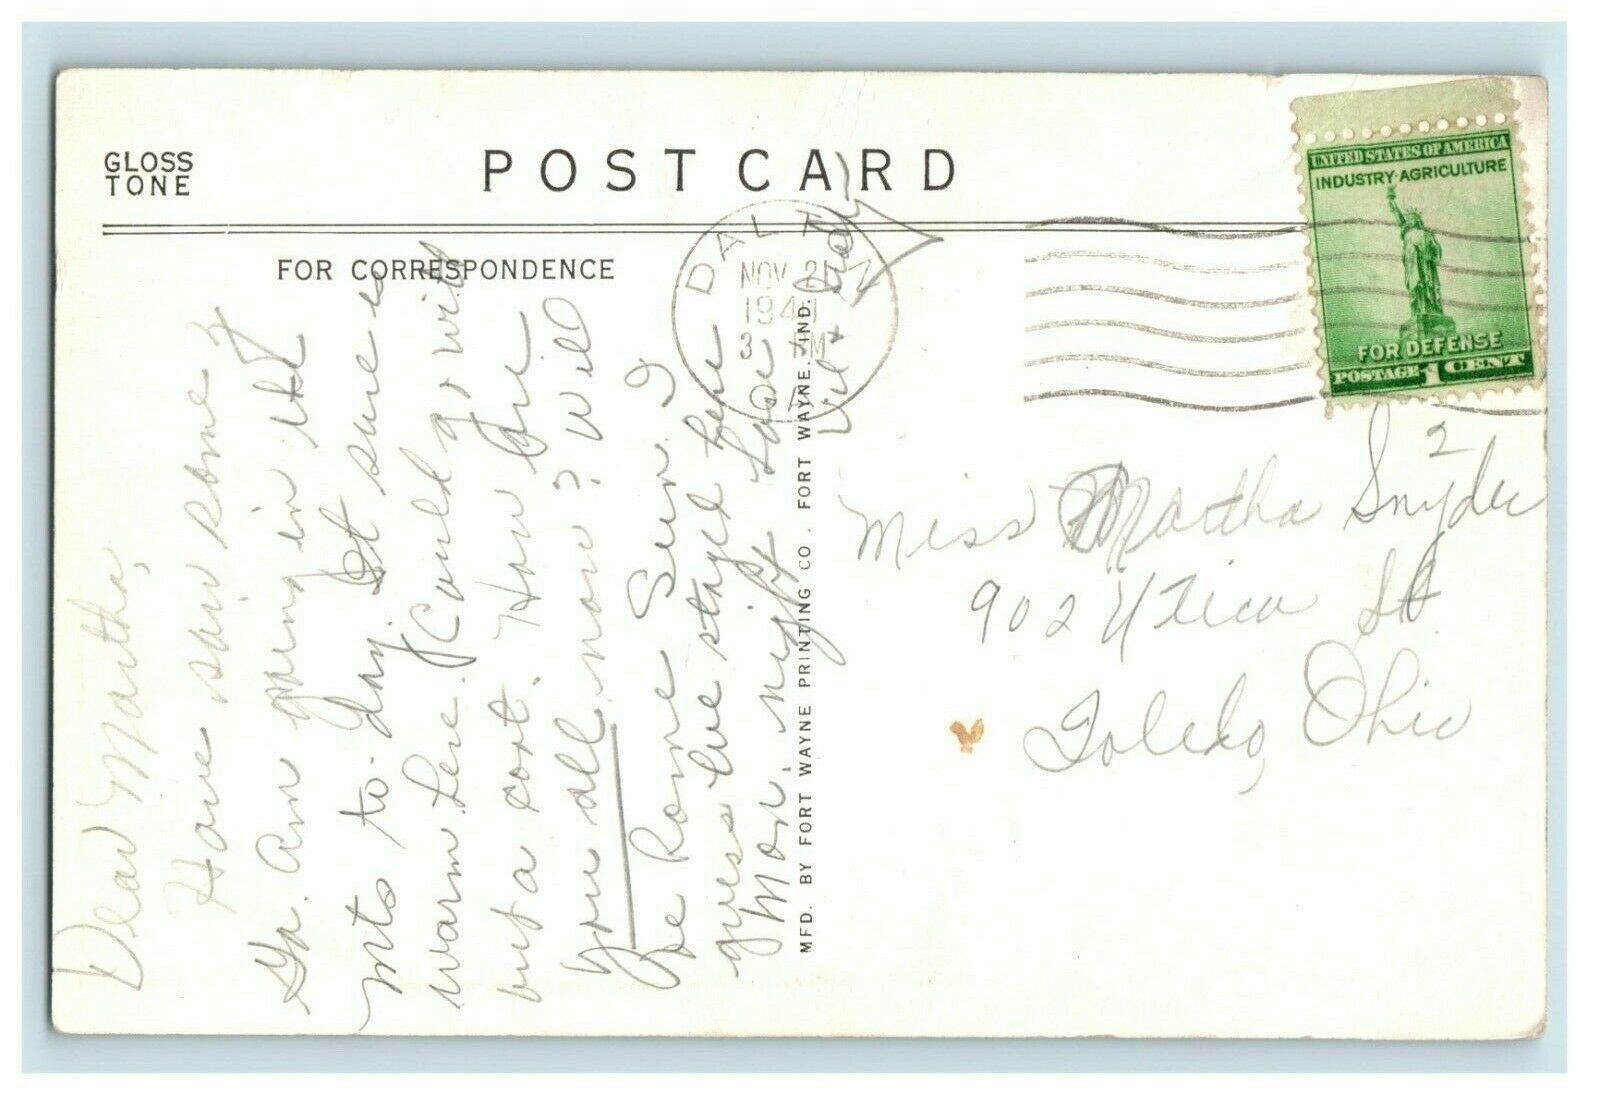 GLOSS
TONE
POST CARD
FOR CORRESPONDENCE
DALTON
NOV 2
1941
3 PM
GA
UNITED STATES OF AMERICA
INDUSTRY · AGRICULTURE
FOR DEFENSE
POSTAGE 1 CENT
Dear Martha,
Have saw some of
Ga. Am going in the
mts to-day. It sure is
warm here. Could go with
out a coat. How are
you all now? Will
be home Sun. I
guess. We stayed here
Mon. night Love
Vel +
MFD. BY FORT WAYNE PRINTING CO., FORT WAYNE, IND.
2
Miss Martha Snyder
902 Utica St
Toledo, Ohio